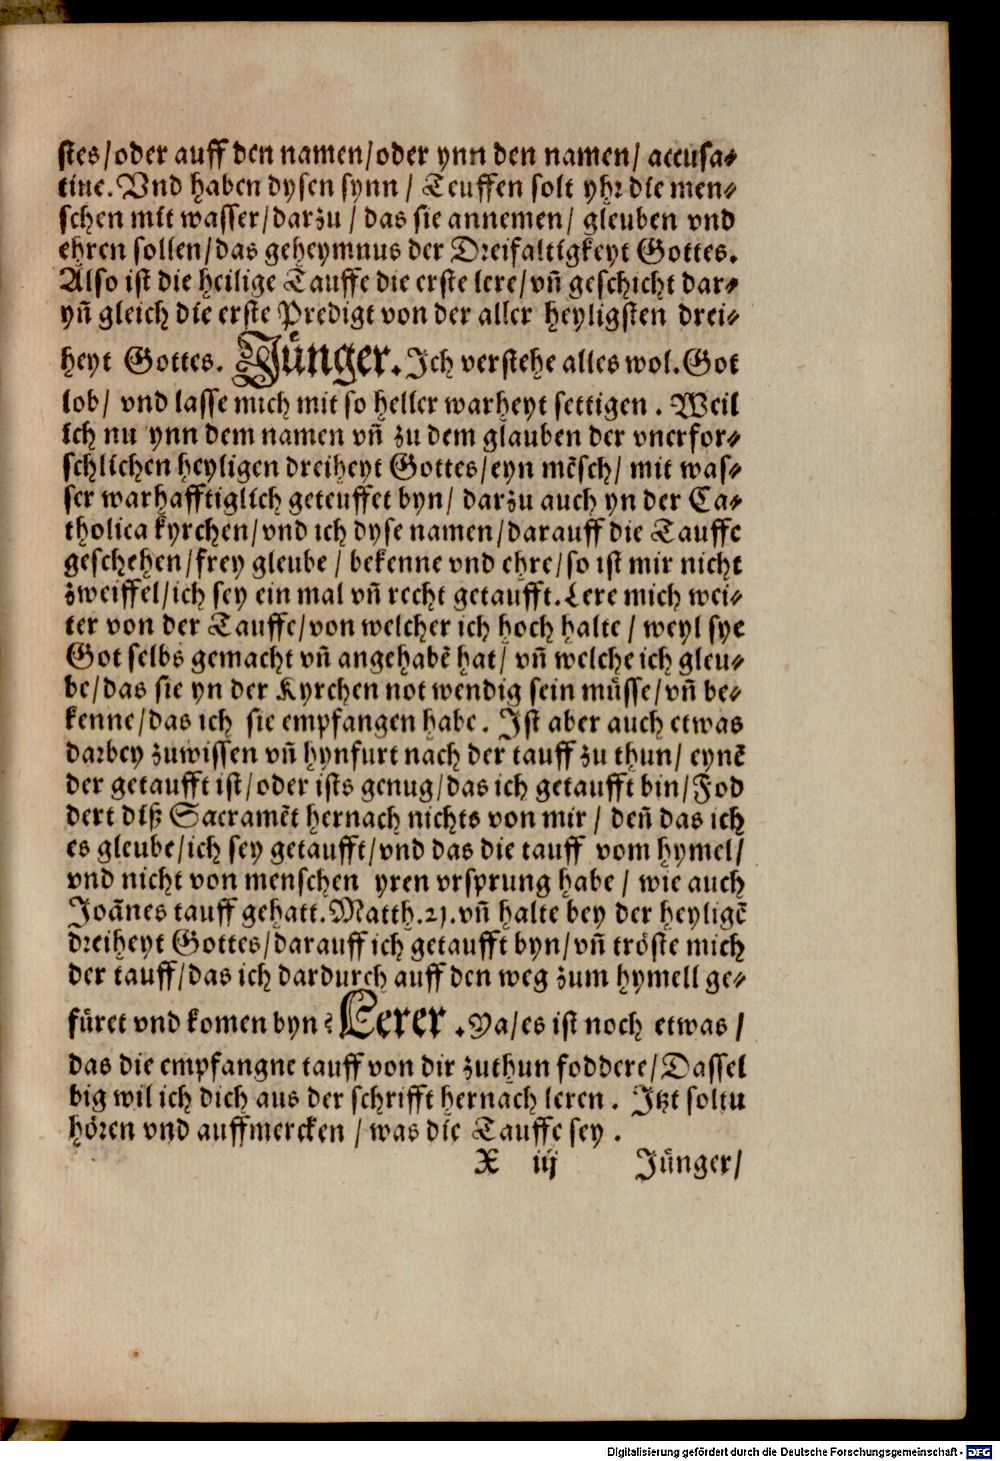 stes/oder auff den namen/oder ynn den namen/ accusa⸗
tiue. Vnd haben dysen synn / Teuffen solt yhr die men⸗
schen mit wasser/darzu / das sie annemen/ gleuben vnd
ehren sollen/das geheymnus der Dreifaltigkeyt Gottes.
Also ist die heilige Tauffe die erste lere/vñ geschicht dar⸗
yñ gleich die erste Predigt von der aller heyligsten drei⸗
heyt Gottes. Jünger. Ich verstehe alles wol. Got
lob/ vnd lasse mich mit so heller warheyt settigen . Weil
ich nu ynn dem namen vñ zu dem glauben der vnerfor⸗
schlichen heyligen dreiheyt Gottes/eyn mẽsch/ mit was⸗
ser warhafftiglich geteuffet byn/ darzu auch yn der Ca⸗
tholica kyrchen/vnd ich dyse namen/darauff die Tauffe
geschehen/frey gleube / bekenne vnd ehre/so ist mir nicht
zweiffel/ich sey ein mal vñ recht getaufft. Lere mich wei⸗
ter von der Tauffe/von welcher ich hoch halte / weyl sye
Got selbs gemacht vñ angehabẽ hat/ vñ welche ich gleu⸗
be/das sie yn der Kyrchen notwendig sein müsse/vñ be⸗
kenne/das ich sie empfangen habe. Ist aber auch etwas
darbey zuwissen vñ hynfurt nach der tauff zu thun/ eynẽ
der getaufft ist/oder ists genug/das ich getaufft bin/Fod
dert diß Sacramẽt hernach nichts von mir / deñ das ich
es gleube/ich sey getaufft/vnd das die tauff vom hymel/
vnd nicht von menschen yren vrsprung habe / wie auch
Joãnes tauff gehatt. Matth.21. vñ halte bey der heyligẽ
dreiheyt Gottes/darauff ich getaufft byn/vñ tröste mich
der tauff/das ich dardurch auff den weg zum hymell ge⸗
füret vnd komen byn? Lerer . Ya/es ist noch etwas /
das die empfangne tauff von dir zuthun foddere/Dassel
big wil ich dich aus der schrifft hernach leren . Itzt soltu
hören vnd auffmercken / was die Tauffe sey .
X iij Jünger/
Digitalisierung gefördert durch die Deutsche Forschungsgemeinschaft - DFG